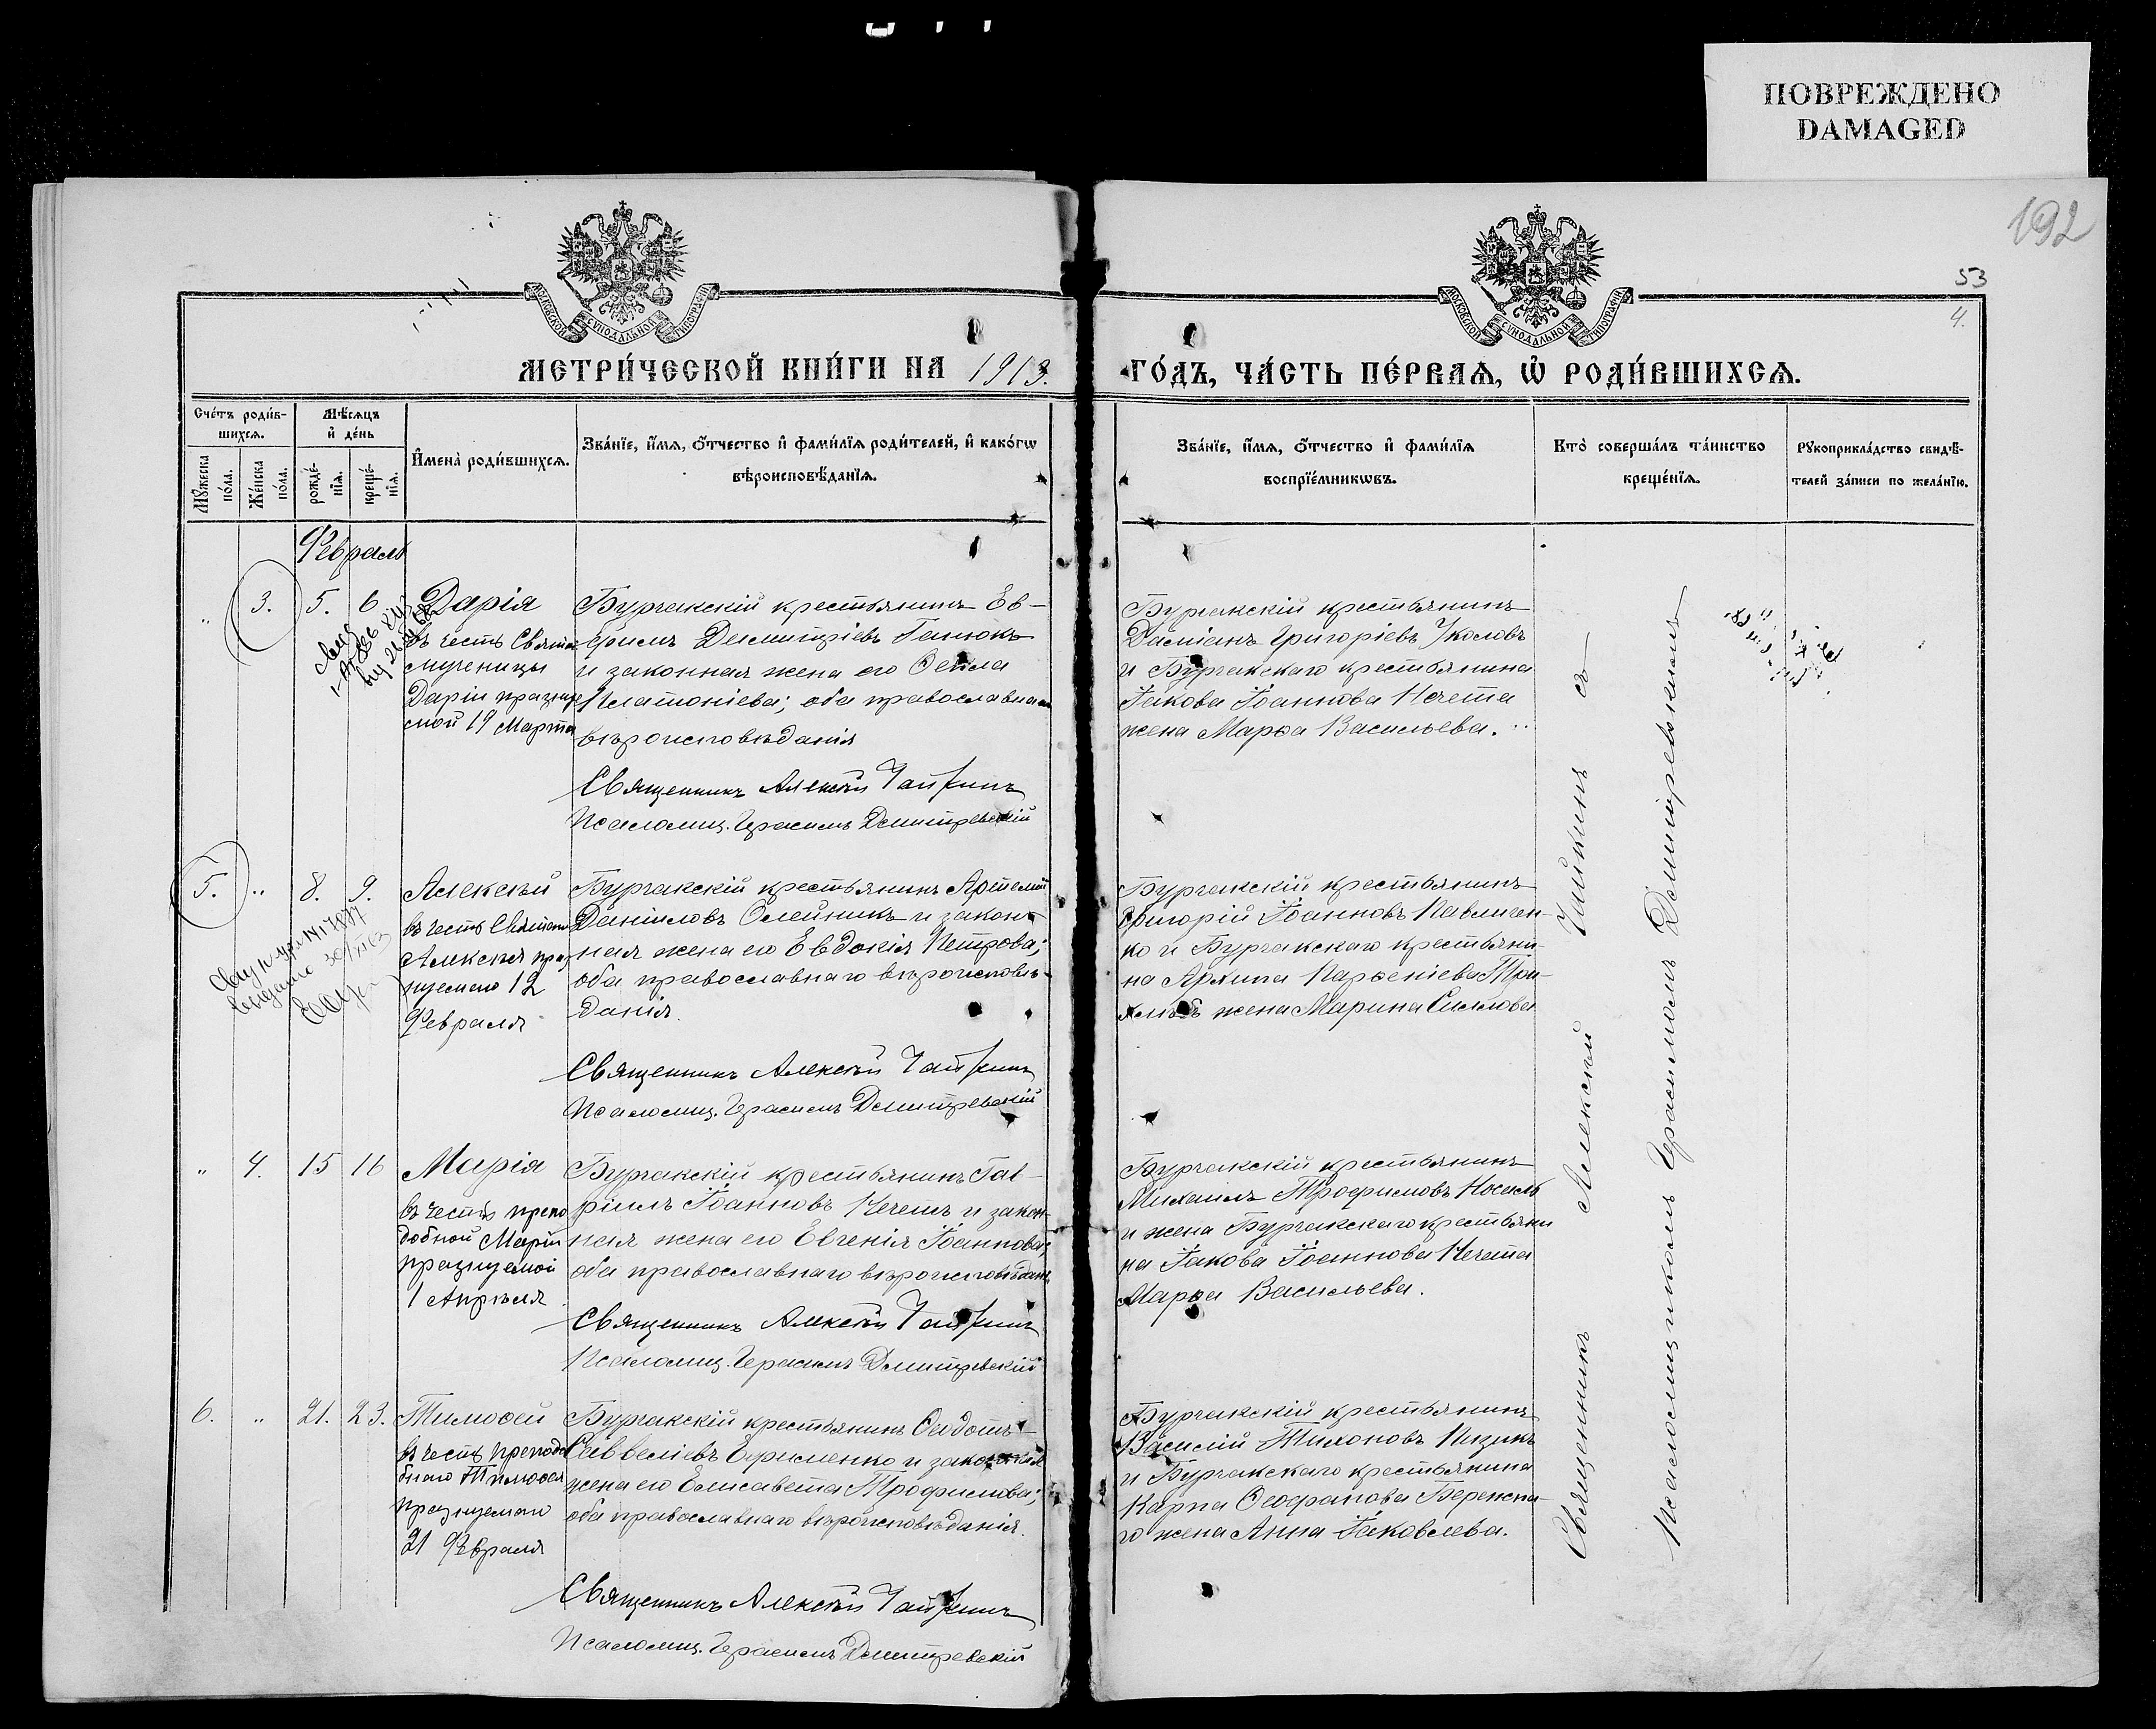 ПОВРЕЖДЕНО
DAMAGED
192
53
4.
МОСКОВСКОЙ СѴНОДАЛЬНОЙ ТИПОГРАФІИ
МОСКОВСКОЙ СѴНОДАЛЬНОЙ ТИПОГРАФІИ
МЕТРИ́ЧЕСКОЙ КНИ́ГИ НА 1913.
ГО́ДЪ, ЧА́СТЬ ПЕ́РВАѦ, Ѡ҆ РОДИ́ВШИХСѦ.
Сче́тъ роди́в-
шихсѧ.
Мꙋ́жеска
по́ла.
Же́нска
по́ла.
Мѣ́сѧцъ
и҆ де́нь
рожде́-
нїѧ.
креще́-
нїѧ.
И҆мена̀ роди́вшихсѧ.
Зва́нїе, и҆́мѧ, ѻ҆́тчество и҆ фами́лїѧ роди́телей, и҆ како́гѡ
вѣроисповѣ́данїѧ.
Зва́нїе, и҆́мѧ, ѻ҆́тчество и҆ фами́лїѧ
воспрїе́мникѡвъ.
Кто̀ соверша́лъ та́инство
креще́нїѧ.
Рꙋкоприкла́дство свидѣ́-
телей за́писи по жела́нїю.
Февраль
" 3. 5. 6
Дарія
въ честь Свято
мученицы
Даріи празнуе
мой 19 Марта
Бурчакскій крестьянинъ Ев-
фимъ Димитріевъ Ганюкъ
и законная жена его Ѳекла
Платоніева; оба православнаго
вѣроисповѣданія
Священникъ Алексѣй Чайкинъ
Псаломщ. Герасимъ Димитревскій
Бурчакскій крестьянинъ
Даміанъ Григоріевъ Уколовъ
и Бурчакскаго крестьянина
Іакова Іоаннова Кечета
жена Марѳа Васильева.
5. " 8. 9.
Алексѣй
въ честь Святит
Алексѣя праз
нуемаго 12
Февраля
Бурчакскій крестьянинъ Артемій
Даніиловъ Олейникъ и закон-
ная жена его Евдокія Петрова;
оба православнаго вѣроисповѣ-
данія.
Священникъ Алексѣй Чайкинъ
Псаломщ. Герасимъ Димитревскій
Бурчакскій крестьянинъ
Григорій Іоанновъ Павличен-
ко и Бурчакскаго крестьяни-
на Архипа Парѳеніева
жена Марина
" 4. 15 16
Марія
въ честь препо
добной Маріи
празнуемой
1 Апрѣля
Бурчакскій крестьянинъ Гав-
ріилъ Іоанновъ Кечетъ и закон-
ная жена его Евгенія Іоаннова;
оба православнаго вѣроисповѣдан.
Священникъ Алексѣй Чайкинъ
Псаломщ. Герасимъ Димитревскій
Бурчакскій крестьянинъ
Михаилъ Трофимовъ Носаль
и жена Бурчакскаго крестьяни
на Іакова Іоаннова Кечета
Марѳа Васильева.
6. " 21. 23.
Тимоѳей
въ честь преподо
бнаго Тимоѳея
празнуемаго
21 Февраля
Бурчакскій крестьянинъ Ѳедотъ
Савеліевъ Ефименко и законная
жена его Елисавета Трофимова;
оба православнаго вѣроисповѣданія.
Священникъ Алексѣй Чайкинъ
Псаломщ. Герасимъ Димитревскій
Бурчакскій крестьянинъ
Василій Тихоновъ Пизикъ
и Бурчакскаго крестьянина
Карпа Ѳеофанова Бережна-
го жена Анна Іаковлева.
Священникъ Алексѣй Чайкинъ съ
Псаломщикомъ Герасимомъ Димитревскимъ